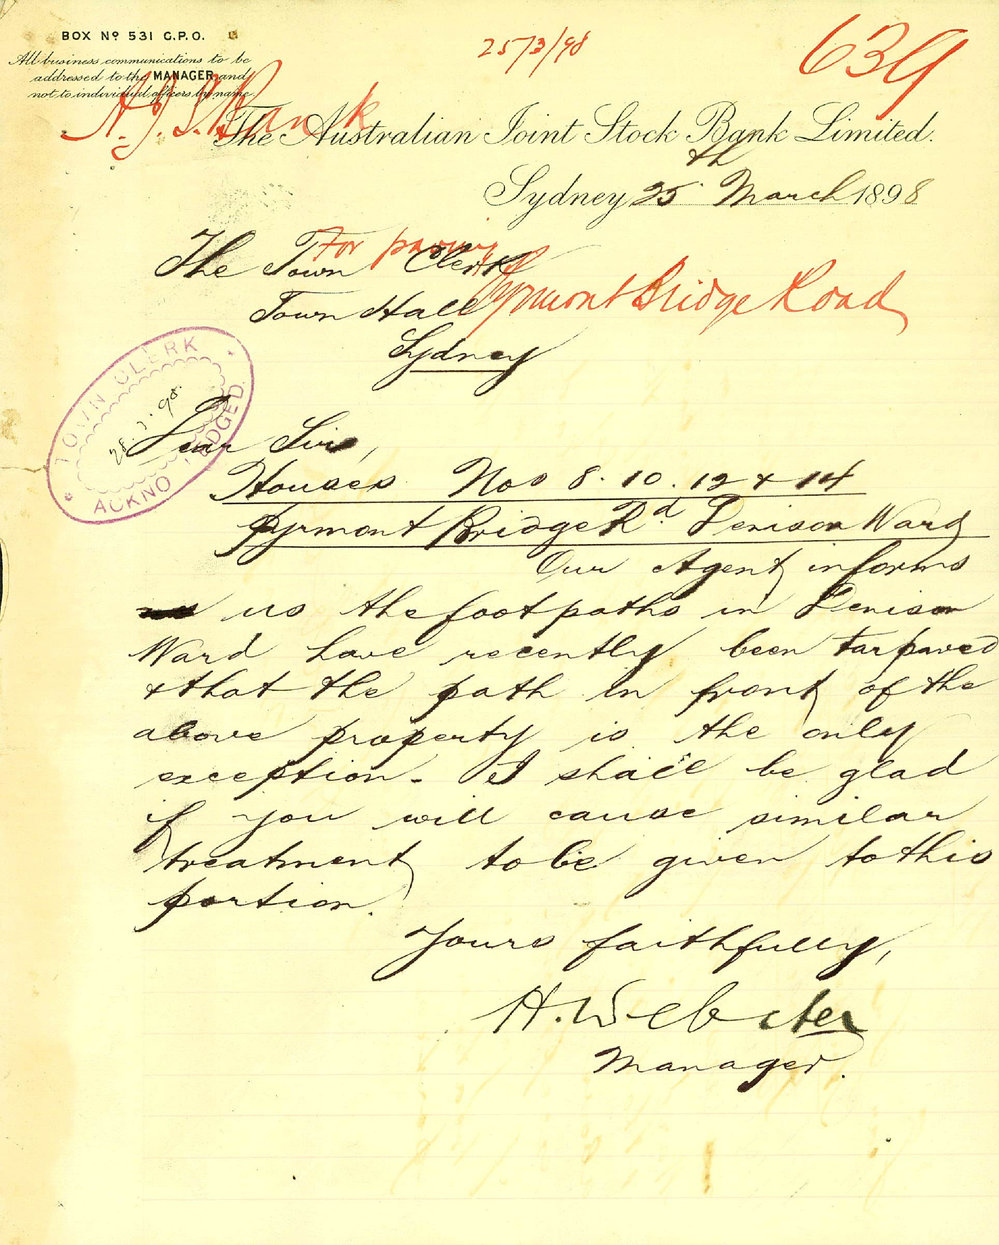 BOX Nº 531 G.P.O.
All business communications to be
addressed to the MANAGER and
not to individual officers by name.
25/3/98
639
A.J.S. Bank
The Australian Joint Stock Bank Limited.
Sydney 25th March 1898
The Town Clerk
Town Hall
Sydney
For paving
Pyrmont Bridge Road
TOWN CLERK
28.3.98
ACKNOWLEDGED.
Dear Sir,
Houses Nos 8. 10. 12 & 14
Pyrmont Bridge Rd Denison Ward
Our Agent informs
us the footpaths in Denison
Ward have recently been tarpaved
& that the path in front of the
above property is the only
exception. I shall be glad
if you will cause similar
treatment to be given to this
portion.
Yours faithfully,
H. Webster
Manager.